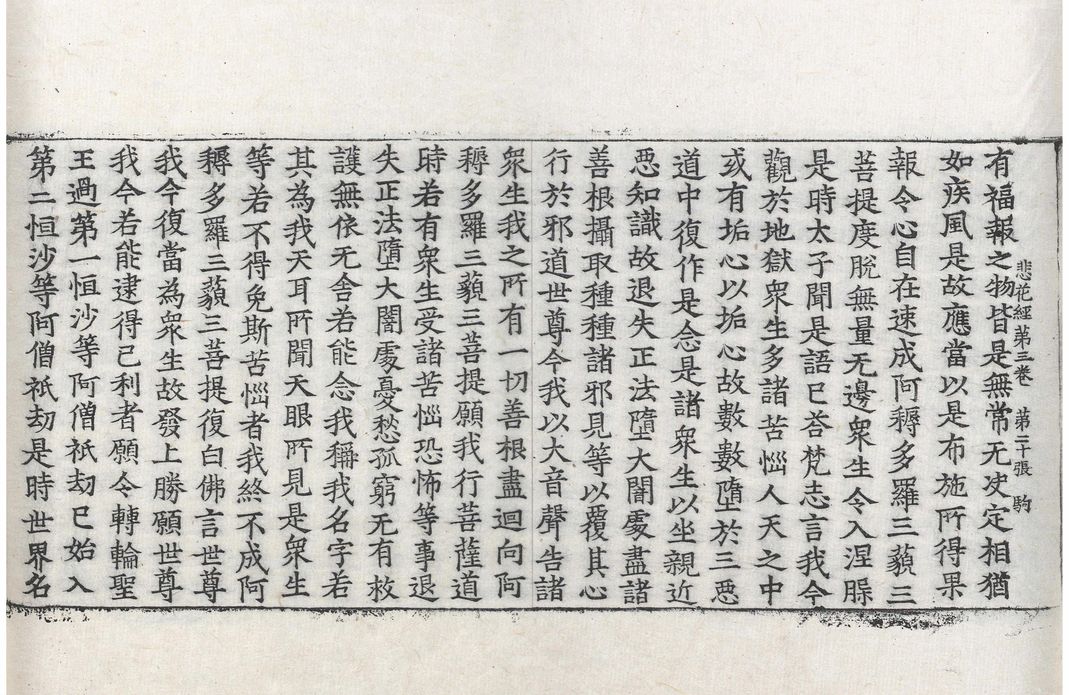 悲花經第三卷　第二十張　駒
有福報之物皆是無常无决定相猶
如疾風是故應當以是布施所得果
報令心自在速成阿耨多羅三藐三
菩提度脫無量无邊衆生令入涅槃
是時太子聞是語已荅梵志言我今
觀於地獄衆生多諸苦惱人天之中
或有垢心以垢心故數數墮於三惡
道中復作是念是諸衆生以坐親近
惡知識故退失正法墮大闇處盡諸
善根攝取種種諸邪見等以覆其心
行於邪道世尊今我以大音聲告諸
衆生我之所有一切善根盡迴向阿
耨多羅三藐三菩提願我行菩薩道
時若有衆生受諸苦惱恐怖等事退
失正法墮大闇處憂愁孤窮无有救
護無依无舍若能念我稱我名字若
其為我天耳所聞天眼所見是衆生
等若不得免斯苦惱者我終不成阿
耨多羅三藐三菩提復白佛言世尊
我今復當為衆生故發上勝願世尊
我今若能逮得己利者願令轉輪聖
王過第一恒沙等阿僧祇劫已始入
第二恒沙等阿僧祇劫是時世界名